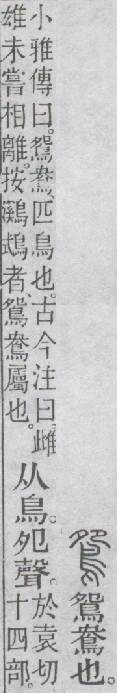 鴛 鴛鴦也。
小雅傳曰。鴛鴦、匹鳥也。古今注曰。雌
雄未嘗相離。按鸂䳵者、鴛鴦屬也。
从鳥。夗聲。
於袁切
十四部。